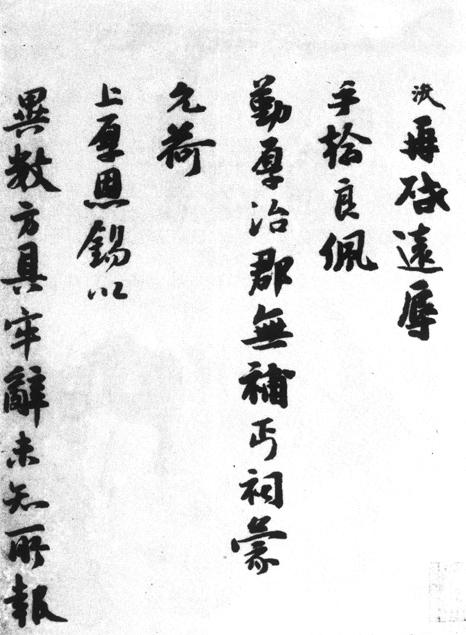 再啓遠辱
手良佩
勤厚治郡無補丐祠蒙
允荷
上厚恩錫以
異數方具牢辭未知所報